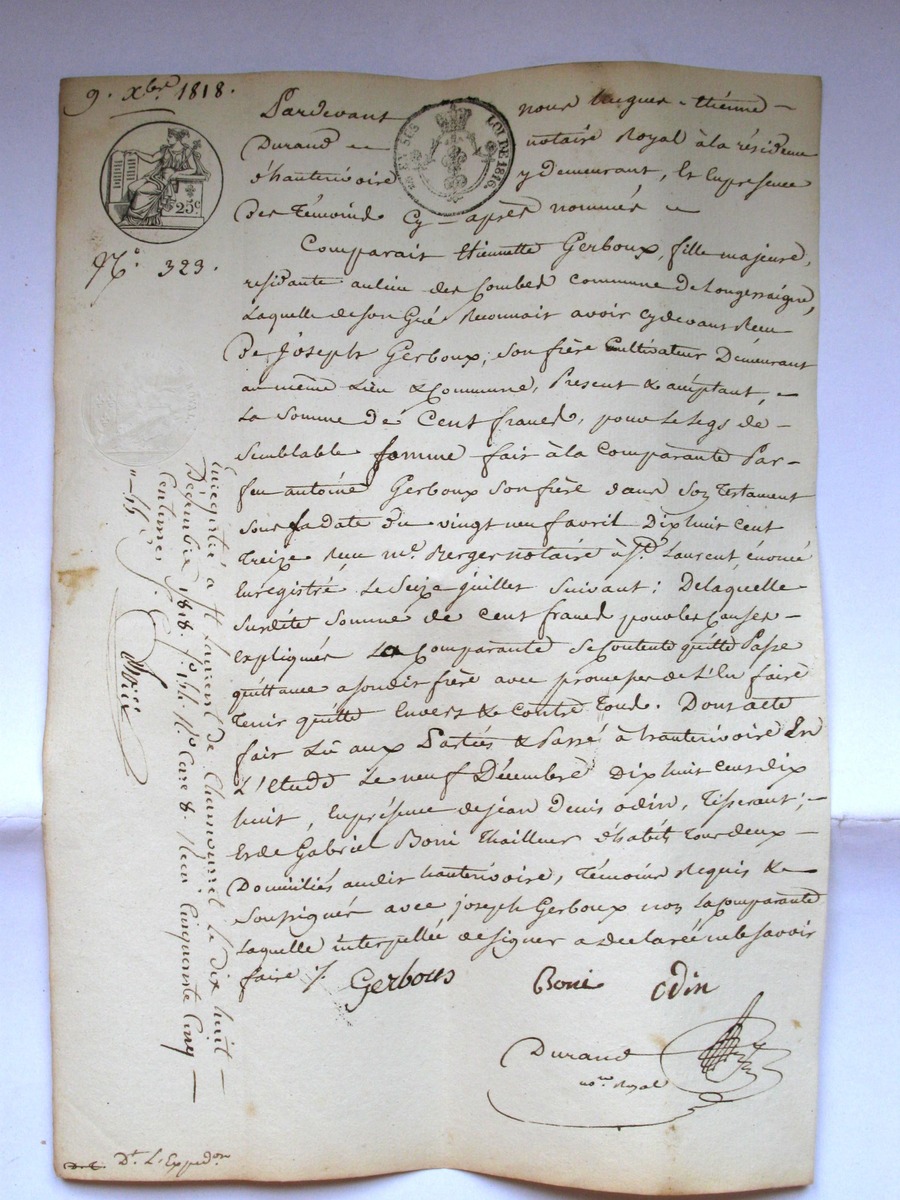 9. Xbre 1818.
25c
EN SUS
LOI DE 1816.
No. 323.
Pardevant nous Jacques-Etienne
Durand notaire Royal à la résidence
d'hauterivoire y demeurant, Et En présence
des Témoins Cy-après nommés
Comparait Etiennette Gerboux, fille majeure,
résidante au lieu des Combes commune de Longessaigne,
Laquelle de son Gré Reconnait avoir cydevant Recu
De Joseph Gerboux, son frère Cultivateur Demeurant
au même Lieu & Commune, Present & acceptant,
La Somme de Cent francs, pour Le Legs de
semblable somme fait à la Comparante Par
feu antoine Gerboux son frère dans son Testament
Sous la date du vingt neuf avril Dix huit Cent
Treize Recu me. Berger notaire à St. Laurent,
Enregistré, Le Seize juillet suivant: De laquelle
susdite Somme de Cent francs pour les Causes
Expliquées La Comparante Se Contente quitte Passe
quittance a sondit frère avec promesses de L'En faire
Tenir quitte Envers & Contre Tous. Dont acte
fait Lû aux Parties & Passé à hauterivoire En
L'etude Le neuf Décembre Dix huit Cent dix
huit, En présence de jean Denis Odin, Tisserant;
Et de Gabriel Boni Thailleur d'habits Tous deux
Domiciliés audit hauterivoire, Témoins Requis &
Soussignés avec joseph Gerboux non La Comparante
Laquelle interpellée de signer a declaré ne le savoir
faire
Gerboux Boni Odin
Durand
nore Royal
Enregistré à St Laurent de Chamousset le dix huit
Décembre 1818. fo Vo Case 8. Recu Cinquante Cinq
Centimes
55 C.
Dt. L'Expedon